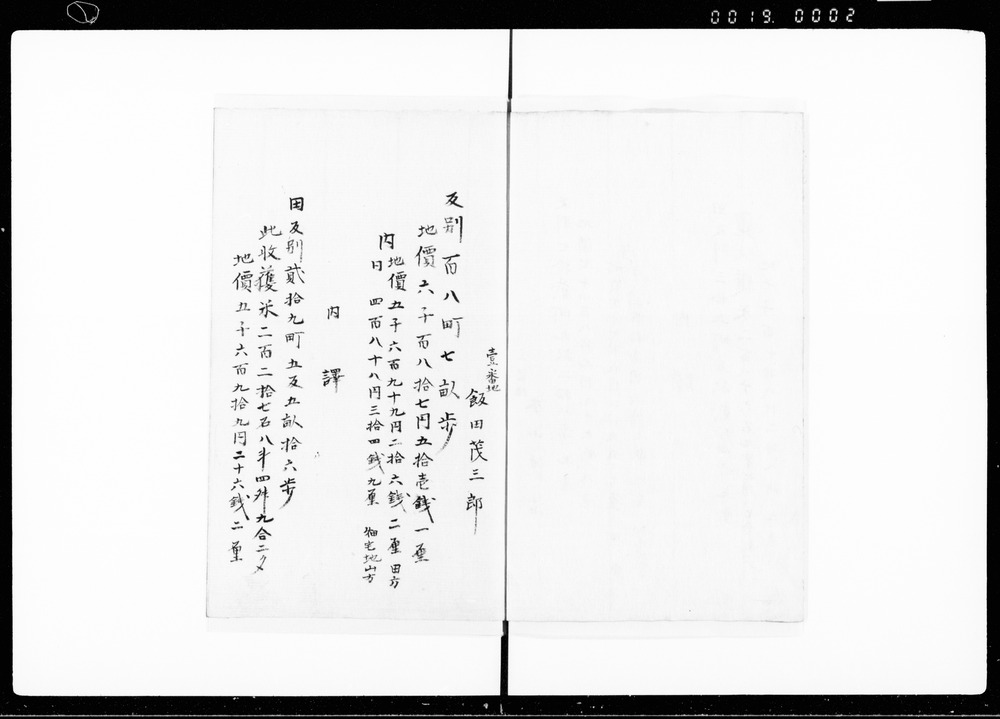 0019. 0002
壹番地
飯田茂三郎
反別百八町七畝歩
地價六千百八拾七円五拾壱錢一厘
内地價五千六百九十九円二拾六錢二厘 田方
〃 四百八十八円三拾四錢九厘 畑宅地山方
内譯
田反別貳拾九町五反五畝拾六歩
此收獲米二百二拾七石八斗四舛九合二夕
地價五千六百九拾九円二十六錢二厘